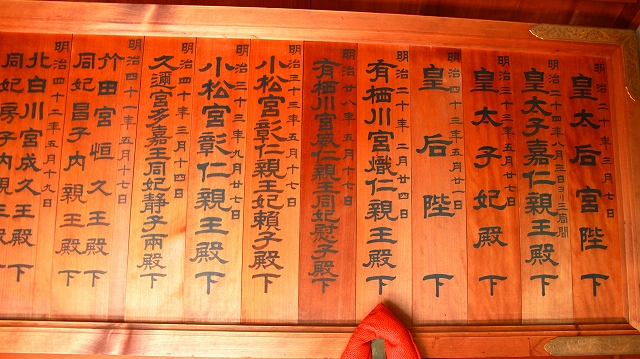 皇太后宮陛下
八月二日ヨリ三周間
皇太子嘉仁親王殿下
皇太子妃殿下
皇后陛下
明治二十三年二月廿四日
有栖川宮熾仁親王殿下
明治廿八年五月十七日
有栖川宮威仁親王同妃慰子殿下
明治三十三年五月十七日
小松宮彰仁親王妃頼子殿下
明治三十三年九月廿七日
小松宮彰仁親王殿下
三月十四日
久邇宮多嘉王同妃静子両殿下
明治四十一年五月十七日
竹田宮恒久王殿下
同妃昌子内親王殿下
明治四十三年五月十九日
北白川宮成久王殿下
同妃房子内親王殿下